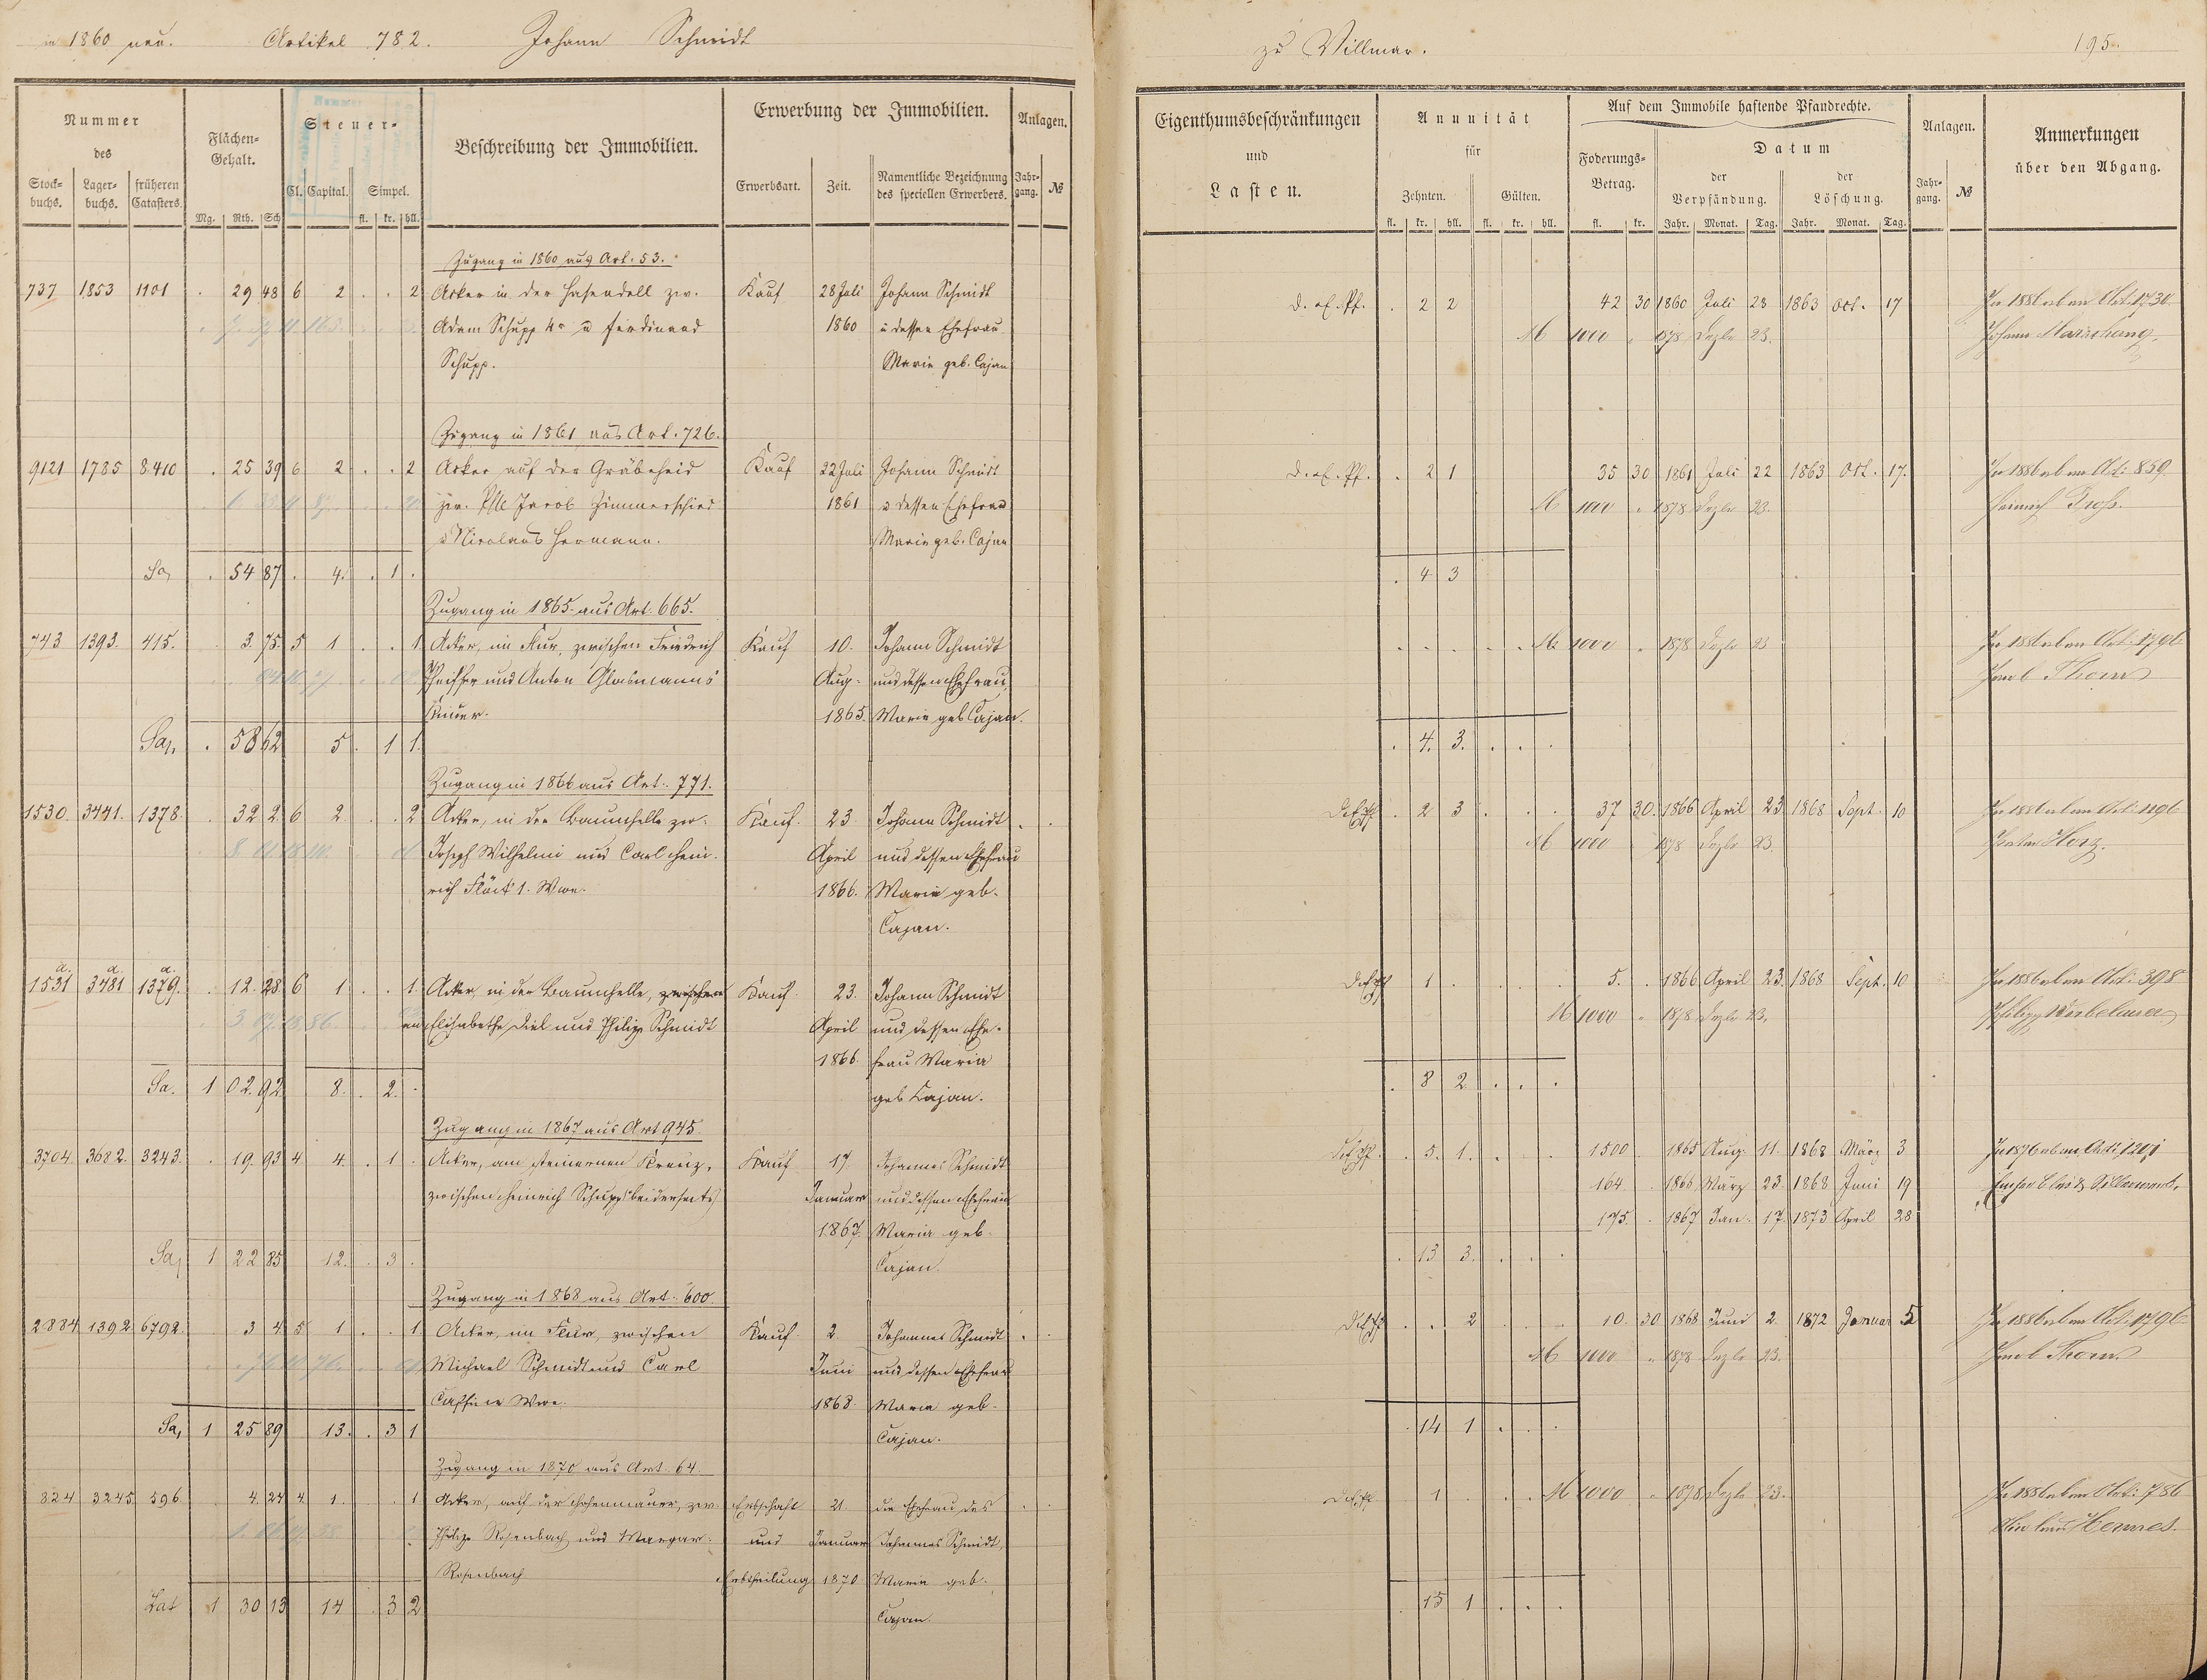 in 1860 neu. Artikel 782. Johann Schmidt
zu Villmar. 195.
Nummer des
Stock-buchs. Lager-buchs. früheren Catasters.
Flächen-Gehalt.
Mg. Rth. Sch
Steuer-
Cl. Capital. Simpel.
fl. kr. hll.
Beschreibung der Immobilien.
Erwerbung der Immobilien.
Erwerbsart. Zeit. Namentliche Bezeichnung des speciellen Erwerbers.
Anlagen.
Jahr-gang. №
Eigenthumsbeschränkungen und Lasten.
Annuität für
Zehnten. Gülten.
fl. kr. hll. fl. kr. hll.
Auf dem Immobile haftende Pfandrechte.
Foderungs-Betrag.
fl. kr.
Datum
der Verpfändung. der Löschung.
Jahr. Monat. Tag. Jahr. Monat. Tag.
Anlagen.
Jahr-gang. №
Anmerkungen über den Abgang.
Zugang in 1860 aus Art. 53.
737 1853 1101 . 29 48 6 2 . . 2 Acker in der Hasendell zw. Kauf 28 Juli Johann Schmidt
Adam Schupp 4r u Ferdinand 1860 u dessen Ehefrau
Schupp. Marie geb. Cajan
. 2 2 42 30 1860 Juli 28 1863 Oct. 17 Art. 1730.
M 1000 . 1878 Dezbr 23. Johann
Zugang in 1861 aus Art. 726.
9121 1785 8410 . 25 39 6 2 . . 2 Acker auf der Gräbeheid Kauf 22 Juli Johann Schmidt
zw. Jacob Zimmerschied 1861 u dessen Ehefrau
u Nicolaus Hermann. Marie geb. Cajan
. 2 1 35 30 1861 Juli 22 1863 Oct. 17. Art. 859.
M 1000 . 1878 Dezbr 23. Heinrich
Sa, . 54 87 . 4. . 1 .
. 4 3
Zugang in 1865 aus Art. 665.
743 1393. 415. 3. 75. 5 1 . . 1 Acker, im Flur, zwischen Friedrich Kauf 10. Johann Schmidt
Pfeiffer und Anton Glasmanns Aug. und dessen Ehefrau
1865. Marie geb Cajan.
M 1000 . 1878 Dezbr 23 Art. 1796
Jacob Thorn
Sa, . 58 62 5 . 1 1.
. 4. 3. . . .
Zugang in 1866 aus Art. 771.
1530. 3441. 1378. . 32 2 6 2 . . 2 Acker, in der Baumhelle zw. Kauf. 23 Johann Schmidt
Joseph Wilhelmi und Carl Hein- April und dessen Ehefrau
rich Flöck 1. Wwe. 1866. Marie geb.
Cajan.
. 2 3 . . . 37 30. 1866 April 23. 1868 Sept. 10 Art. 1196
M 1000 1878 Dezbr 23.
1531a 3481a 1379a. . 12. 28 6 1 . . 1. Acker, in der Baumhelle, zwischen Kauf 23. Johann Schmidt
Elisabetha Diel und Philipp Schmidt April und dessen Ehe-
1866. frau Maria
geb Cajan.
1 . . . . 5. . 1866 April 23. 1868 Sept. 10 Art. 398
M 1000 . 1878 Dezbr 23. Philipp
Sa. 1 02. 92 8. . 2. .
. 8 2 . . .
Zugang in 1867 aus Art 945
3704. 3682. 3243. . 19. 93 4 4. . 1 . Acker, am steinernen Kreuz, Kauf 17 Johannes Schmidt
zwischen Heinrich Schupp beiderseits Januar und dessen Ehefrau
1867. Maria geb.
Cajan.
. 5. 1. . . . 1500 . 1865 Aug. 11. 1868 März 3
164. . 1866 März 23. 1868 Juni 19
175. . 1867 Jan. 17. 1873 April 28
Sa, 1 22 85 12. . 3 .
. 13 3. . . .
Zugang in 1868 aus Art. 600.
2884 1392. 6792. 3 4 5 1 . . 1. Acker, im Flur, zwischen Kauf. 2 Johannes Schmidt
Michael Schmidt und Carl Juni und dessen Ehefrau
Wwe. 1868. Maria geb.
Cajan.
. . 2 10. 30 1868 Juni 2. 1872 Januar 5 Art. 1796.
M 1000 . 1878 Dezbr 23. Jacob Thorn.
Sa, 1 25 89 13. . 3 1
. 14 1 . . .
Zugang in 1870 aus Art. 64.
824 3245 596. 4. 24 4. 1. . 1 Acker, auf der Hohenmauer, zw. Erbschaft 21. die Ehefrau des
Philipp Rosenbach und Margar. und Januar Johannes Schmidt,
Rosenbach Erbtheilung 1870 Maria geb.
Cajan.
. 1 . . . M 1000 . 1878 Dezbr 23. Art. 786
Nicolaus Hennes.
Lat 1 30 13 14 . 3 2
. 15 1 . . .